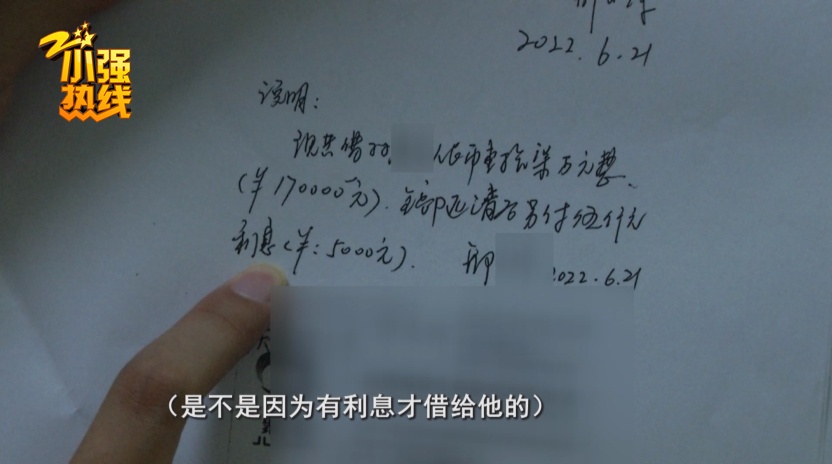 小强
热线
2022.6.21
说明：
现共借 人民币壹拾柒万元整、
(￥170000元). 全部还清后另付伍仟元
利息(￥:5000元). 邢 2022.6.21
（是不是因为有利息才借给他的）